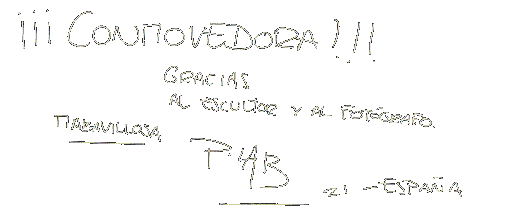 ¡¡¡ CONMOVEDORA !!!
GRACIAS
AL ESCULTOR Y AL FOTÓGRAFO.
MARAVILLOSA
- ESPAÑA